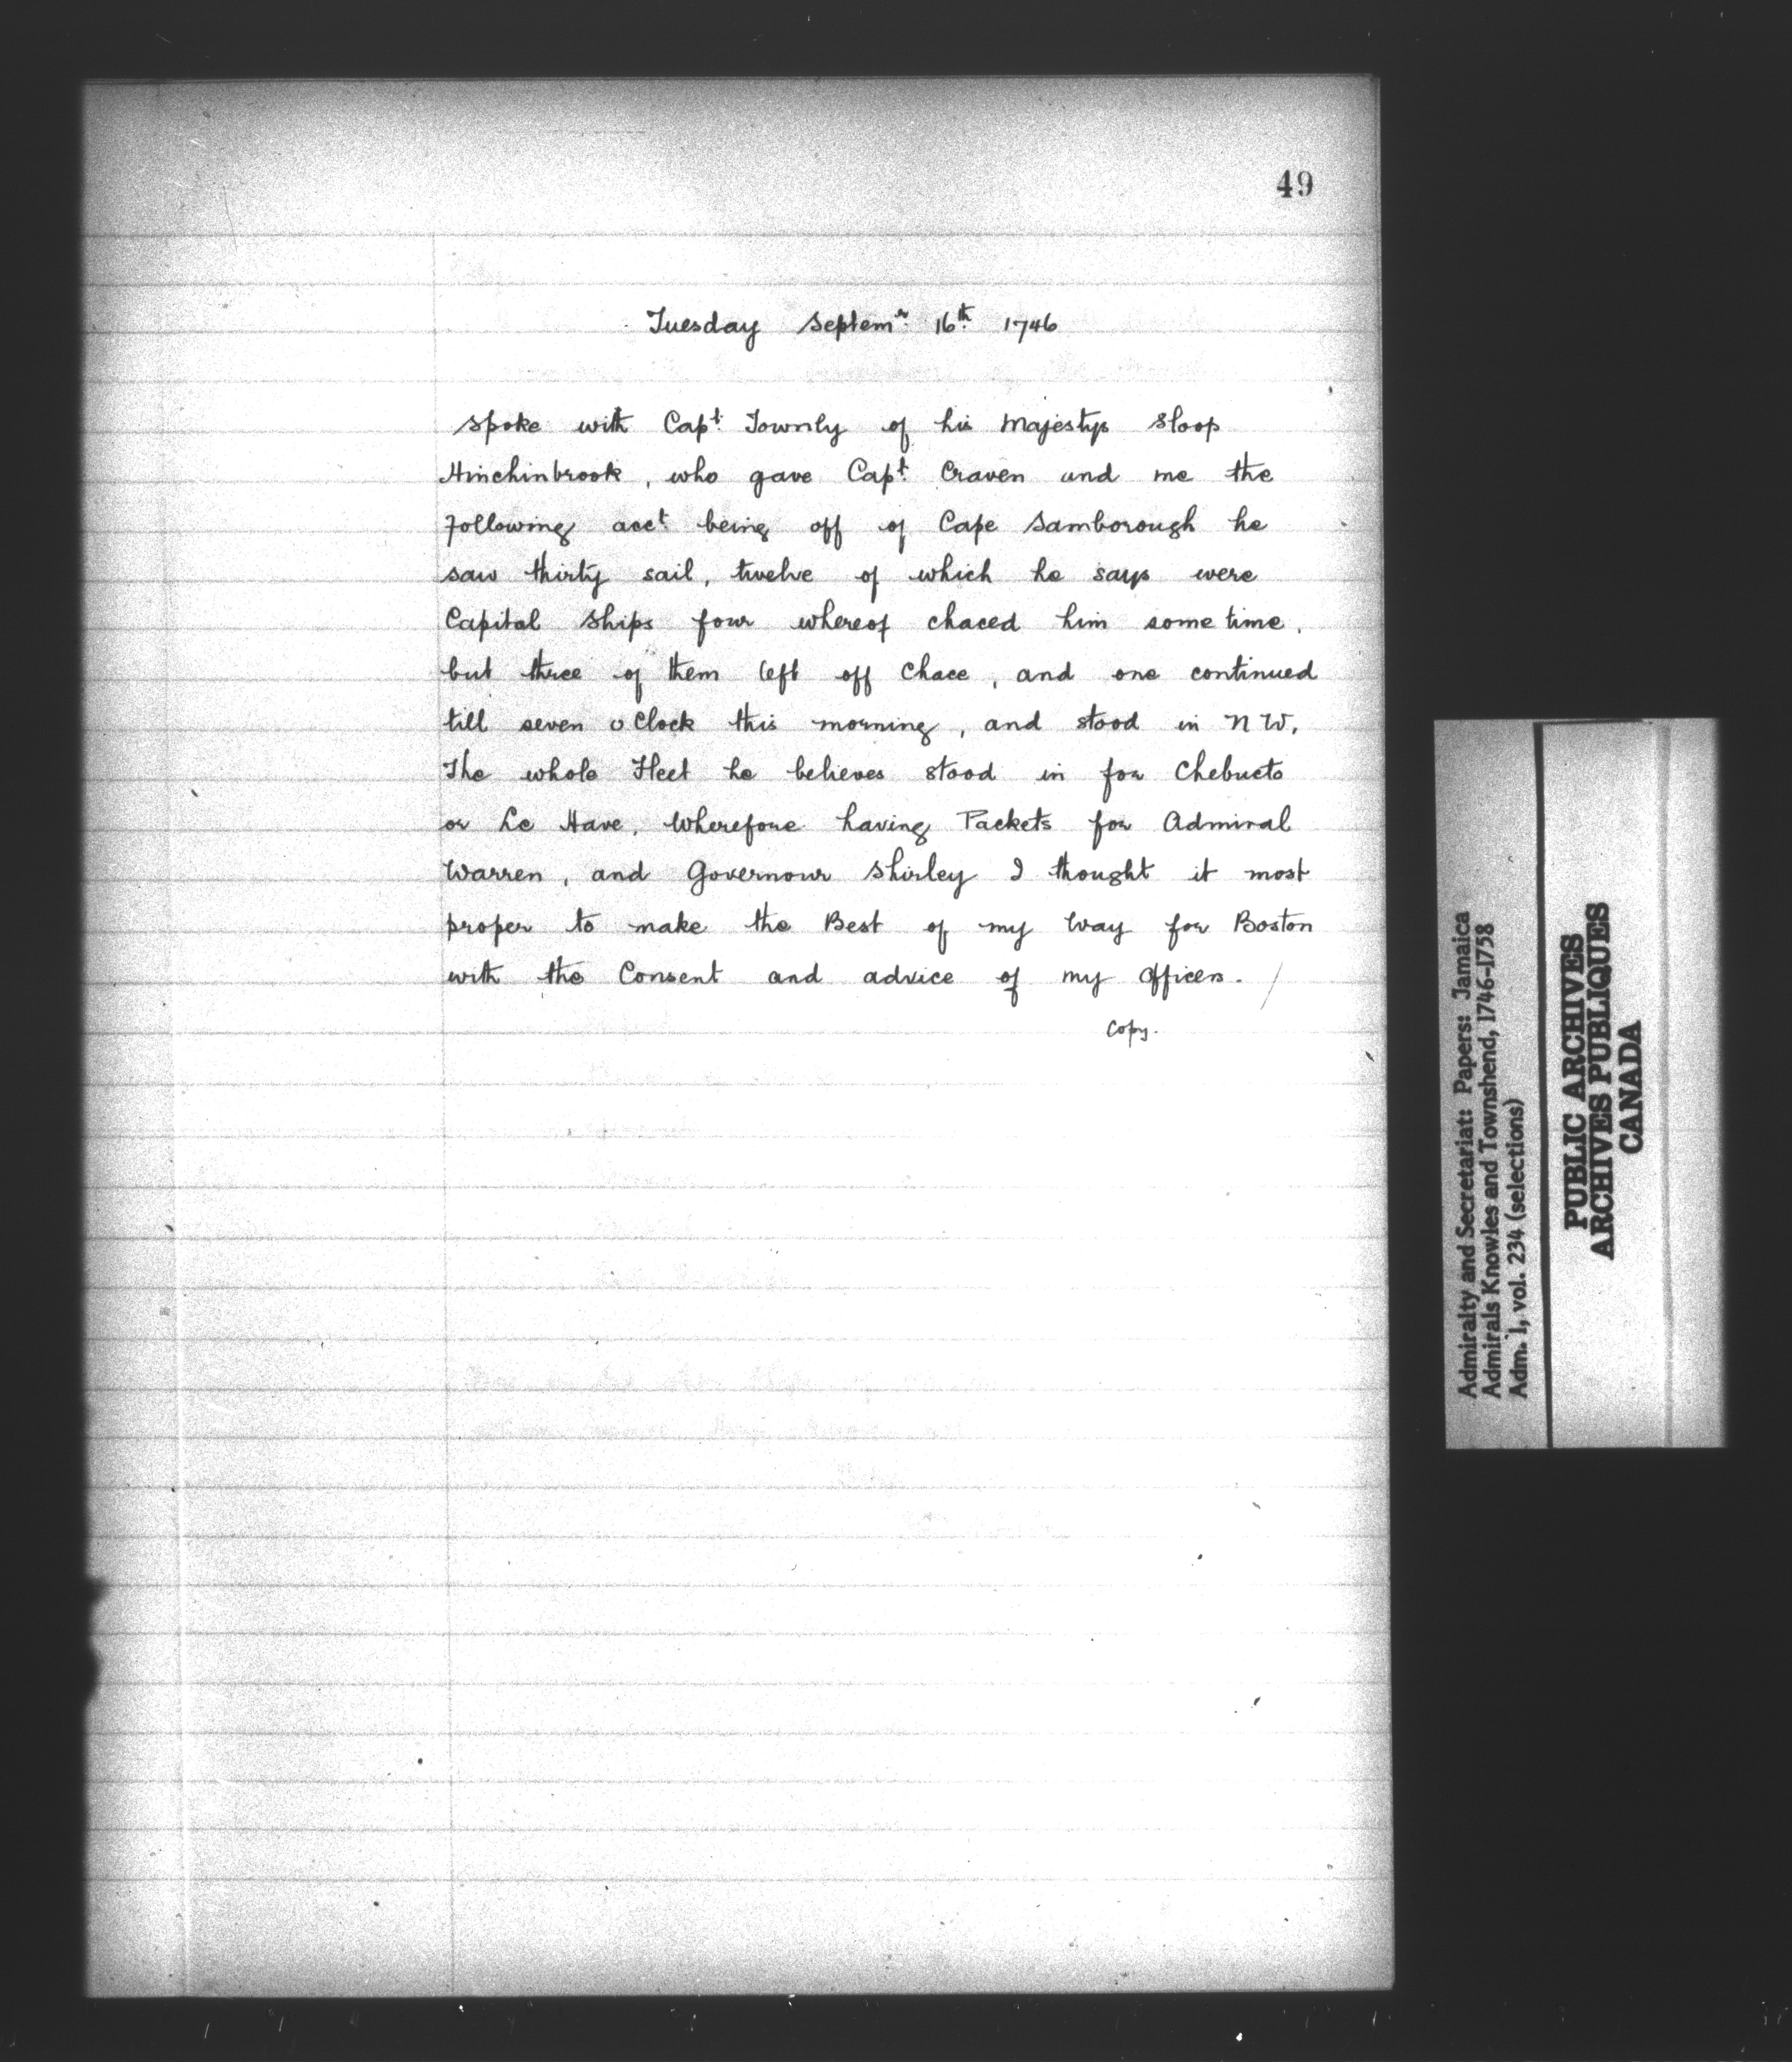 49
Tuesday Septemr. 16th. 1746
Spoke with Capt. Townly of his Majestys Sloop
Hinchinbrook, who gave Capt. Craven and me the
following acct. being off of Cape Samborough he
saw thirty sail, twelve of which he says were
Capital Ships four whereof chaced him some time,
but three of them left off Chace, and one continued
till seven o Clock this morning, and stood in N W.
The whole Fleet he believes stood in for Chebucto
or Le Have, Wherefore having Packets for Admiral
Warren, and Governour Shirley I thought it most
proper to make the Best of my Way for Boston
with the Consent and advice of my Officers. /
Copy.
Admiralty and Secretariat: Papers: Jamaica
Admirals Knowles and Townshend, 1746-1758
Adm. 1, vol. 234 (selections)
PUBLIC ARCHIVES
ARCHIVES PUBLIQUES
CANADA